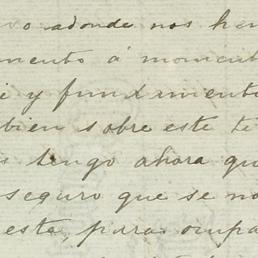 vo adonde nos hem
mento á moment
i y fundamento
bien sobre este te
s tengo ahora qu
seguro que se no
esta, para ocupa